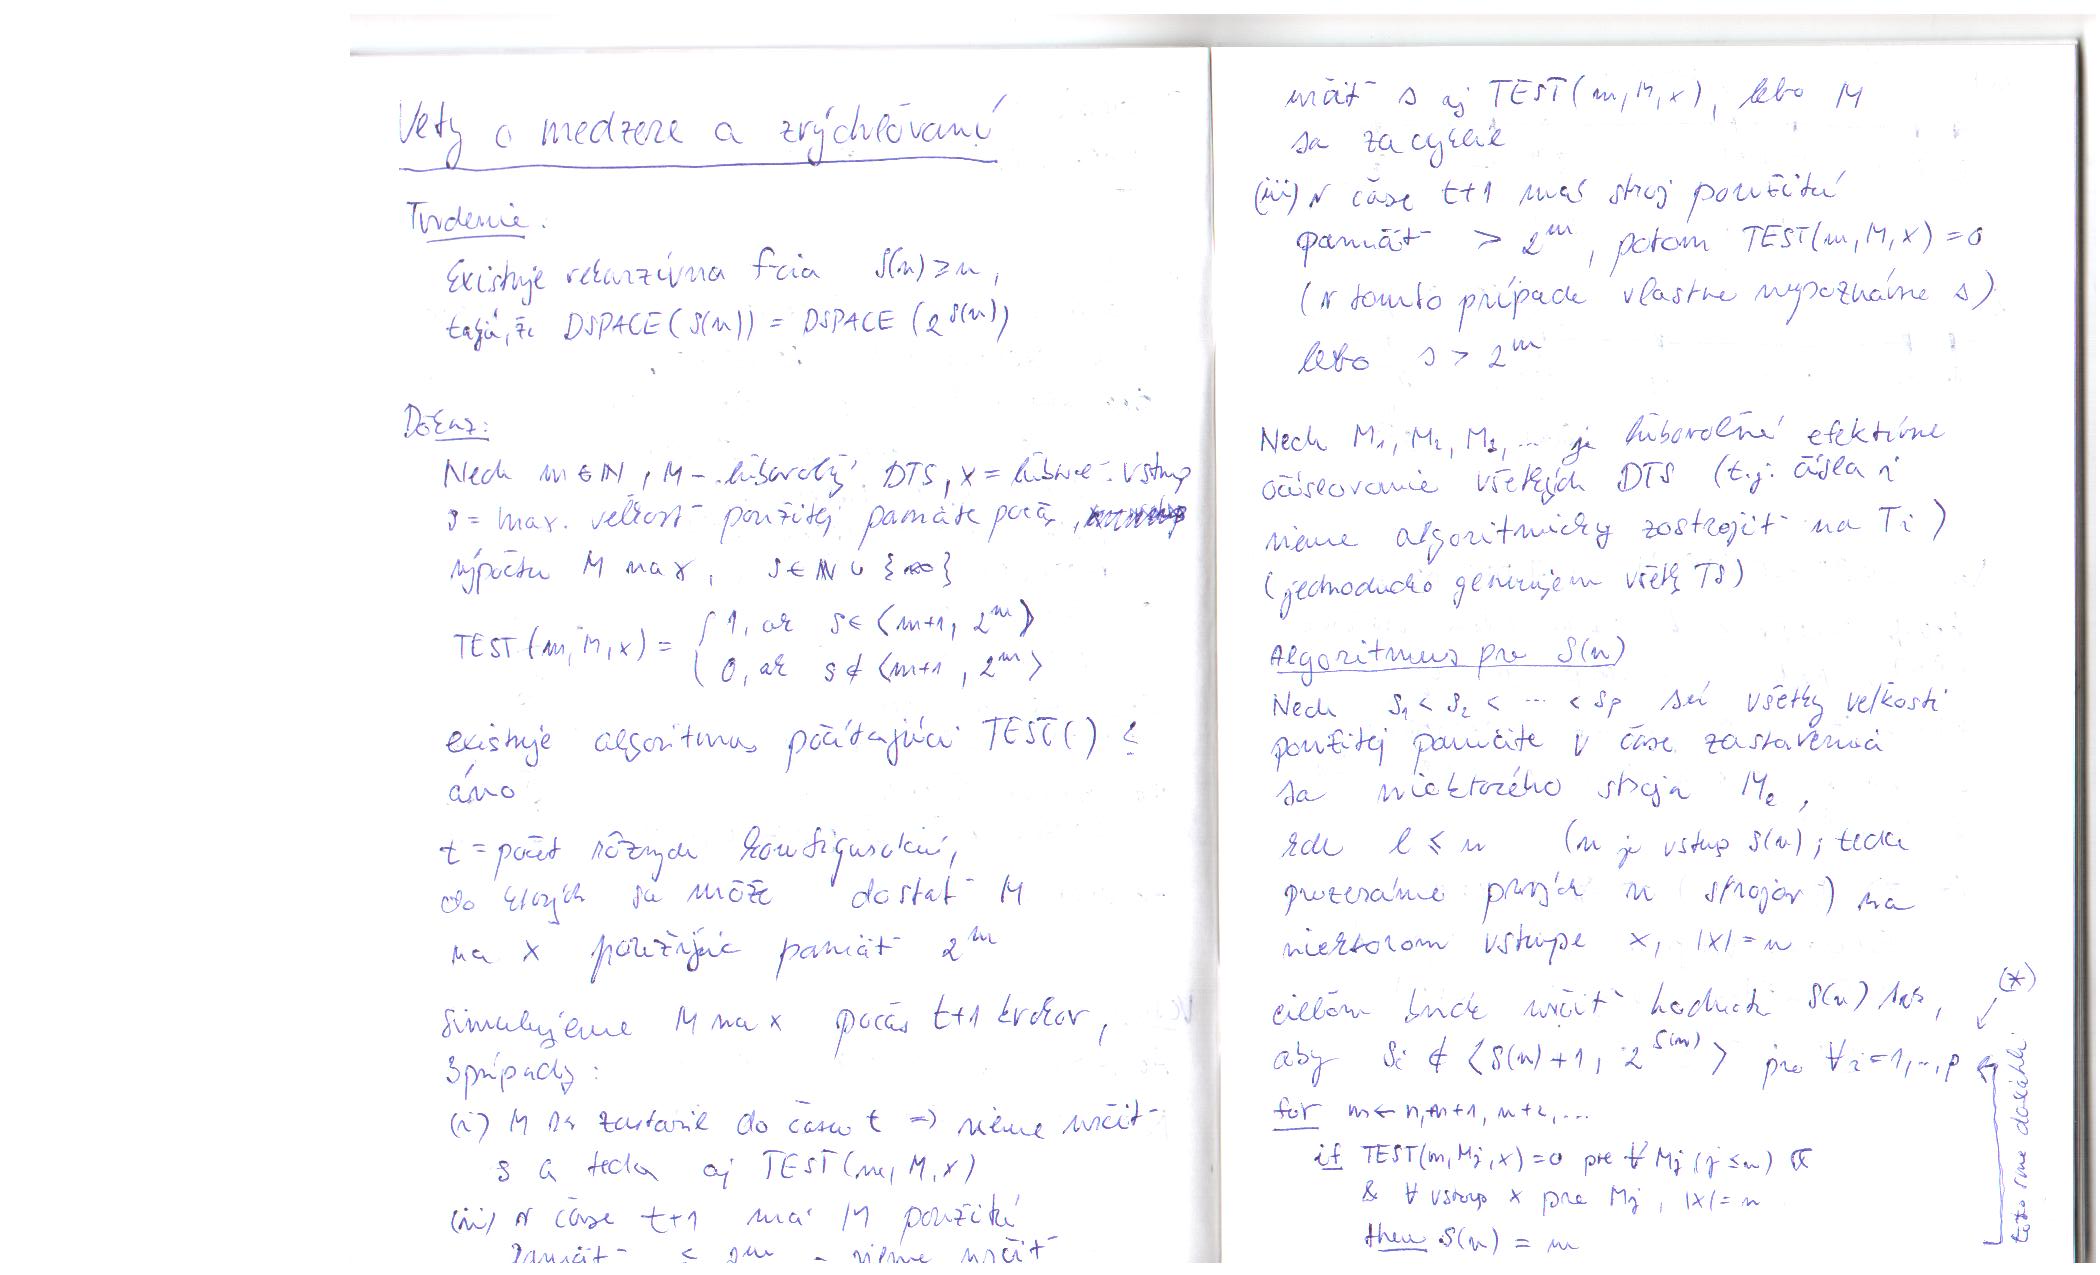 Vety o medzere a zrýchľovaní
Tvrdenie:
Existuje rekurzívna fcia S(n) ≥ n,
taká, že DSPACE(S(n)) = DSPACE(2^S(n))
Dôkaz:
Nech m ∈ N, M – ľubovoľný DTS, x = ľubov. vstup
s = max. veľkosť použitej pamäte počas
výpočtu M na x, s ∈ N ∪ {∞}
TEST(m, M, x) = { 1, ak s ∈ ⟨m+1, 2^m⟩
0, ak s ∉ ⟨m+1, 2^m⟩
existuje algoritmus počítajúci TEST() ?
áno
t = počet rôznych konfigurácií,
do ktorých sa môže dostať M
na x použijúc pamäť 2^m
Simulujeme M na x počas t+1 krokov,
3 prípady:
(i) M sa zastavil do času t => vieme určiť
s a teda aj TEST(m, M, x)
(ii) v čase t+1 má M použitú
pamäť ≤ 2^m - vieme určiť
určiť s aj TEST(m, M, x), lebo M
sa zacyklil
(iii) v čase t+1 má stroj použitú
pamäť > 2^m, potom TEST(m, M, x) = 0
(v tomto prípade vlastne nepoznáme s)
lebo s > 2^m
Nech M1, M2, M3, ... je ľubovoľné efektívne
očíslovanie všetkých DTS (t.j. z čísla i
vieme algoritmicky zostrojiť na Ti)
(jednoducho generujem všetky TS)
Algoritmus pre S(n)
Nech s1 < s2 < ... < sp sú všetky veľkosti
použitej pamäte v čase zastavenia
sa niektorého stroja Mℓ,
kde ℓ ≤ n (n je vstup S(n); teda
prezeráme prvých n strojov) na
niektorom vstupe x, |x| = n
cieľom bude určiť hodnotu S(n) tak, (*)
aby si ∉ ⟨S(n)+1, 2^S(n)⟩ pre ∀ i=1,...,p
for m ← n, n+1, n+2, ...
if TEST(m, Mj, x) = 0 pre ∀ Mj (j ≤ n)
& ∀ vstup x pre Mj, |x| = n
then S(n) = m
toto sme dokázali